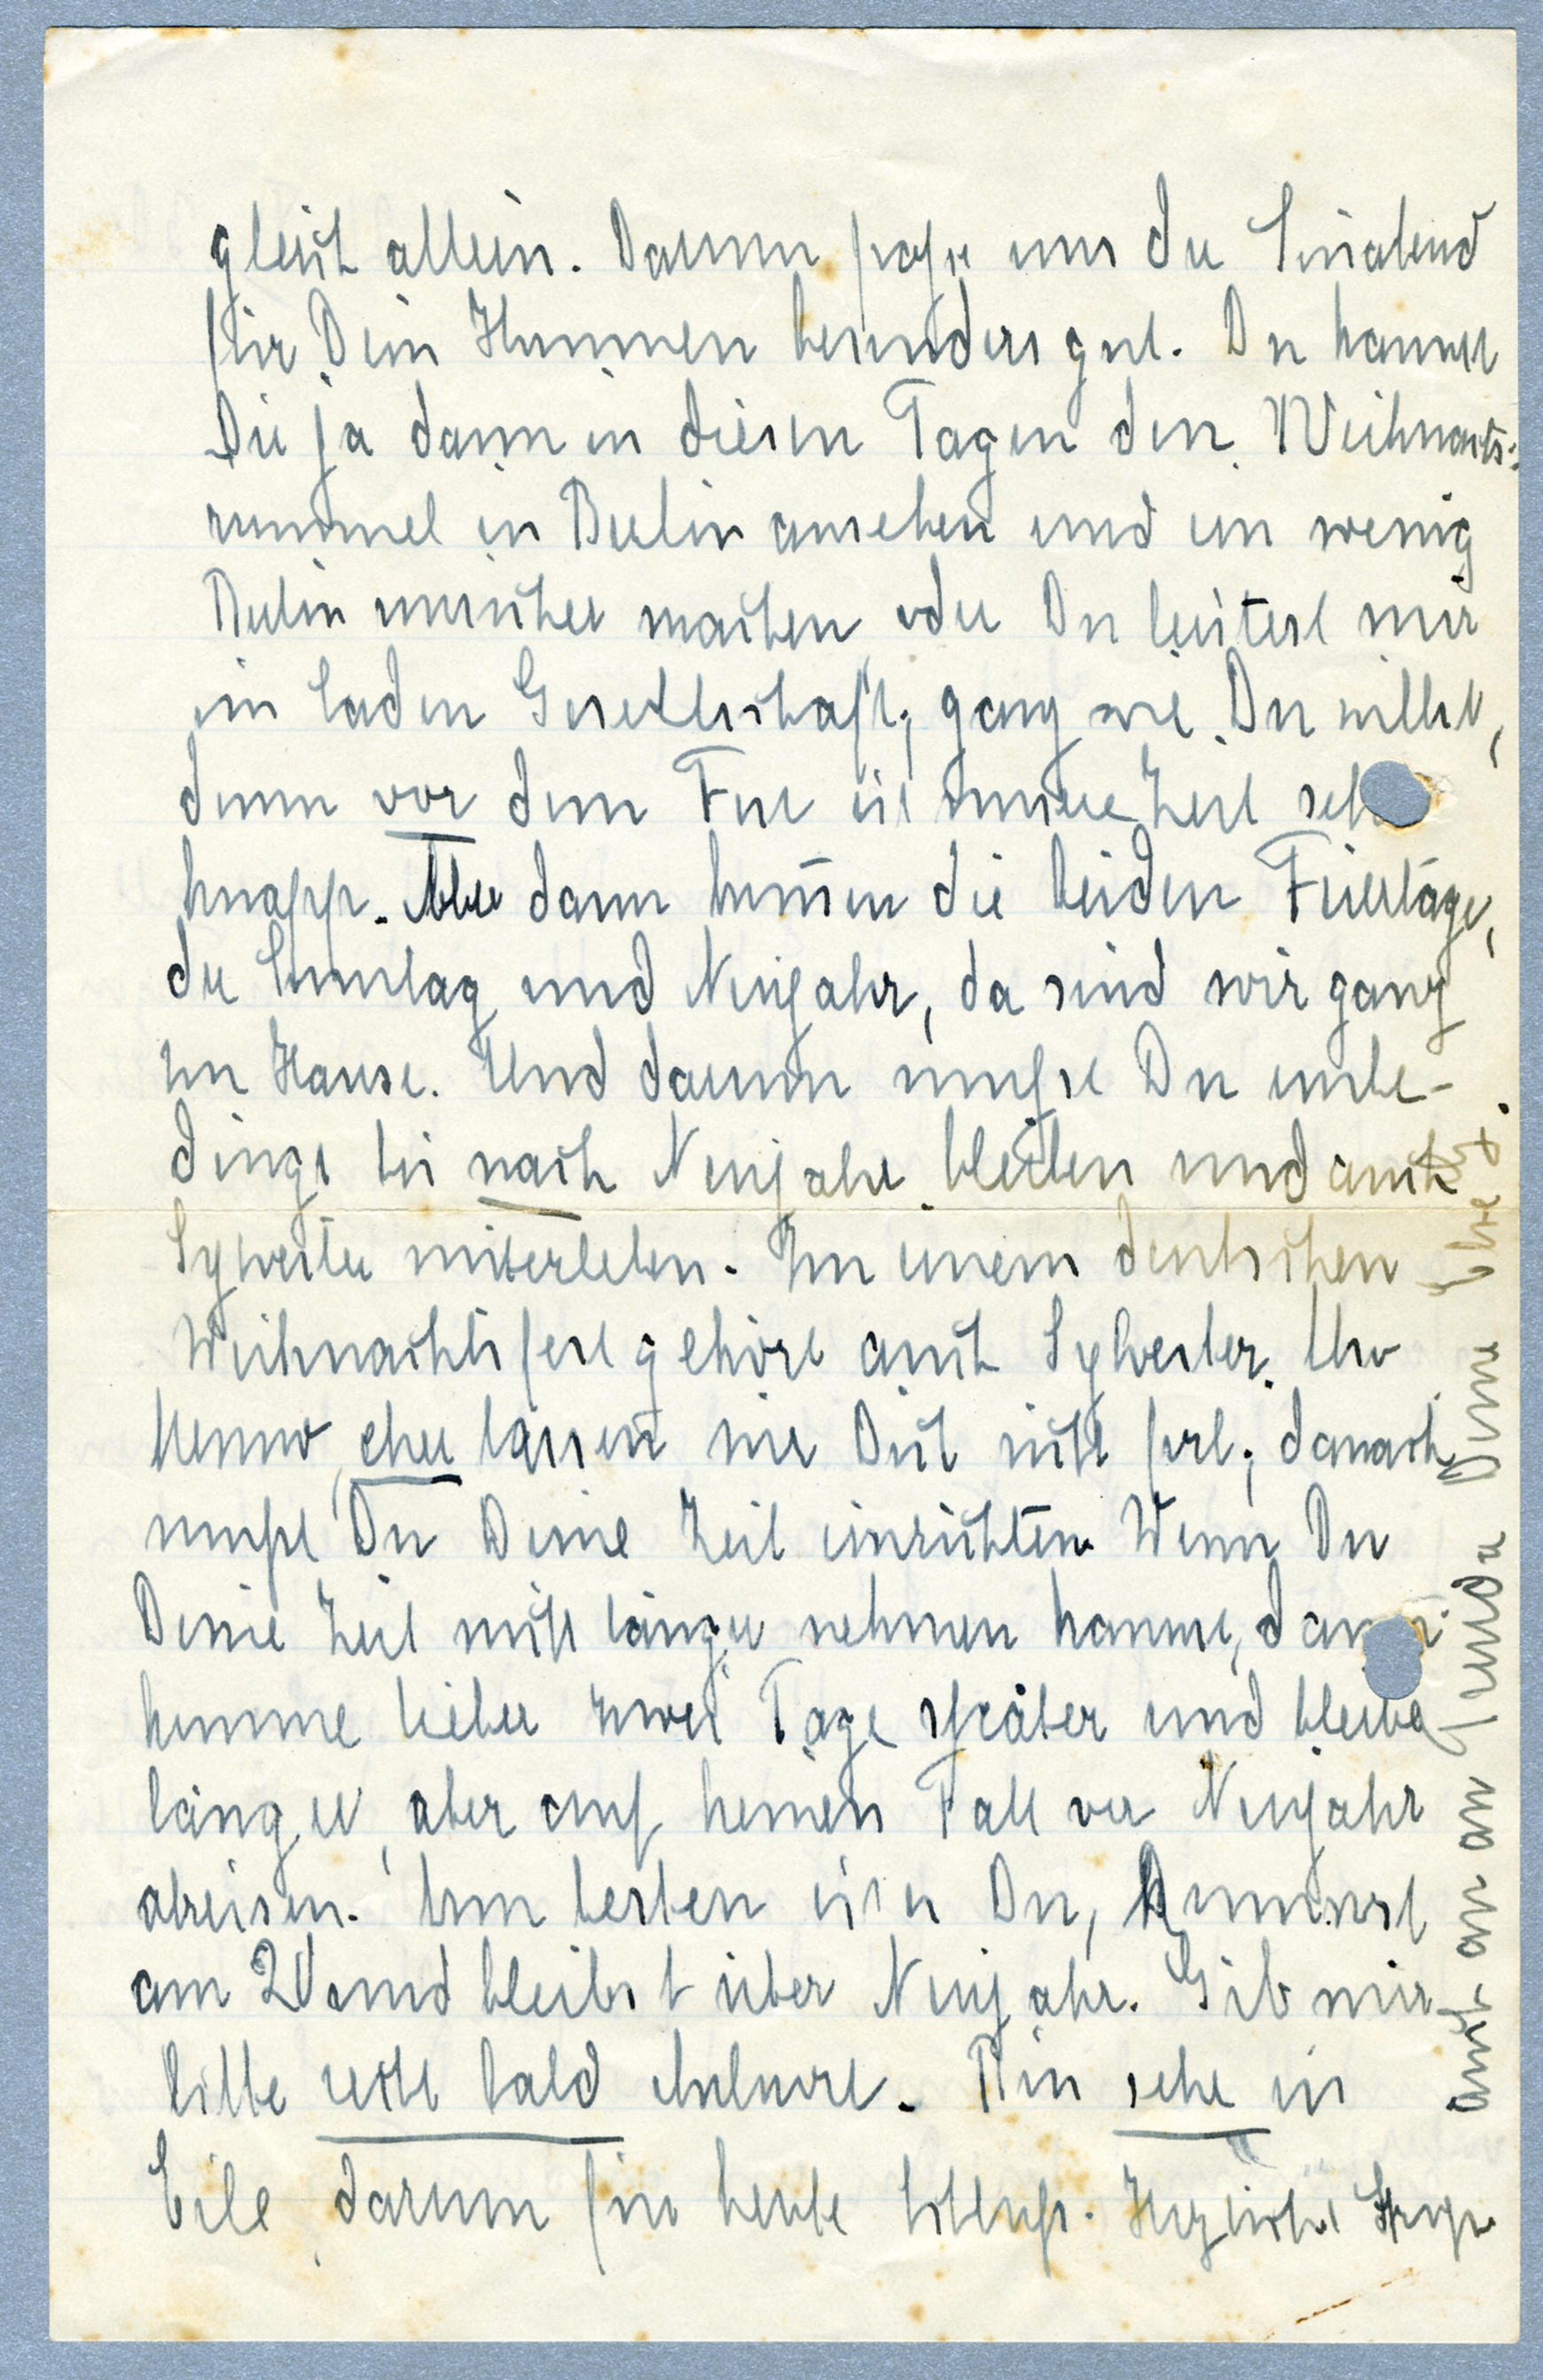 gleich allein. Darum passte uns der Sonabend
für Dein Kommen besonders gut. Du kannst
Dir ja dann in diesen Tagen den Weihnachts-
rummel in Berlin ansehen und ein wenig
Berlin unsicher machen, oder Du leistest mir
im Laden Gesellschaft, ganz wie Du willst,
denn vor dem Fest ist unsere Zeit sehr
knapp. Aber dann kommen die beiden Feiertage,
der Sonntag und Neujahr, da sind wir ganz
zu Hause. Und darum musst Du unbe-
dingt bis nach Neujahr bleiben und auch
Sylvester miterleben. Zu einem deutschen
Weihnachtsfest gehört auch Sylvester. Also
Kenno, eher lassen wir Dich nicht fort; danach
mußt Du Deine Zeit einrichten. Wenn Du
Deine Zeit nicht länger nehmen kannst, dann
komme lieber zwei Tage später und bleibe
länger, aber auf keinen Fall vor Neujahr
abreisen. Am besten ist es Du, kommst
am 20 und bleibst über Neujahr. Gib mir
bitte recht bald Antwort. Bin sehr in
Eile darum für heute Schluß. Herzliche Grüße
auch an an Deine